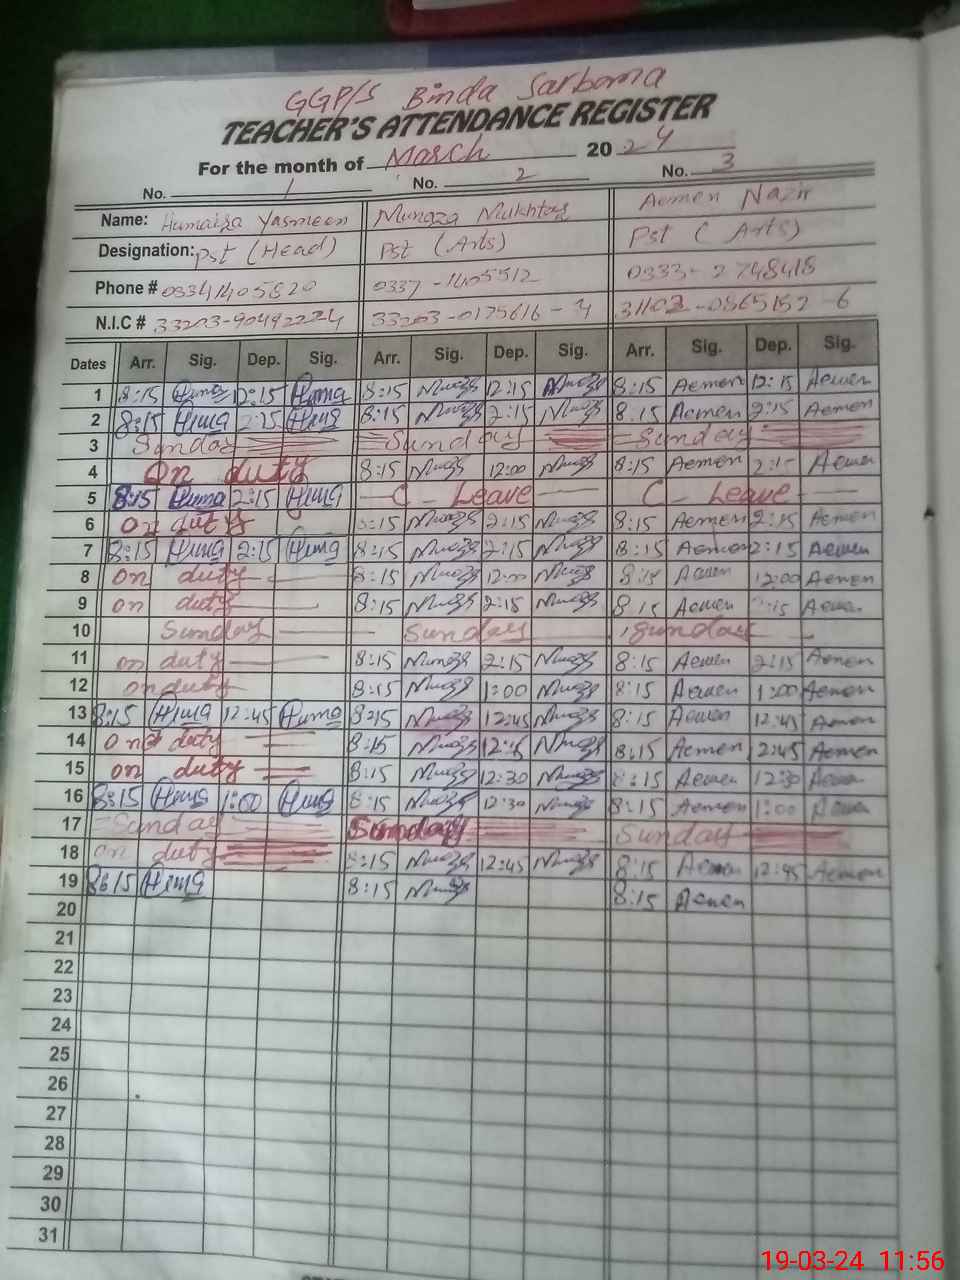 GGP/S Binda Sarbana
TEACHER'S ATTENDANCE REGISTER
For the month of March 2024
No. 1 No. 2 No. 3
Name: Humaira Yasmeen Munaza Mukhtar Aemen Nazir
Designation: Pst (Head) Pst (Arts) Pst (Arts)
Phone # 03341405820 0337-1405512 0333-2748418
N.I.C # 33203-9049222-4 33203-0175616-4 31102-0865152-6
Dates Arr. Sig. Dep. Sig. Arr. Sig. Dep. Sig. Arr. Sig. Dep. Sig.
1 8:15 Huma 12:15 Huma 8:15 12:15 8:15 Aemen 12:15 Aemen
2 8:15 Huma 2:15 Huma 8:15 2:15 8:15 Aemen 2:15 Aemen
3 Sunday Sunday Sunday
4 On duty 8:15 12:00 8:15 Aemen 2:15 Aemen
5 8:15 Huma 2:15 Huma C-Leave C-Leave
6 On duty 8:15 2:15 8:15 Aemen 2:15 Aemen
7 8:15 Huma 2:15 Huma 8:15 2:15 8:15 Aemen 2:15 Aemen
8 on duty 8:15 12:00 8:15 Aemen 12:00 Aemen
9 on duty 8:15 2:15 8:15 Aemen 2:15 Aemen
10 Sunday Sunday Sunday
11 on duty 8:15 2:15 8:15 Aemen 2:15 Aemen
12 on duty 8:15 1:00 8:15 Aemen 1:00 Aemen
13 8:15 Huma 12:45 Huma 8:15 12:45 8:15 Aemen 12:45 Aemen
14 on duty 8:15 8:15 Aemen 12:45 Aemen
15 on duty 8:15 12:30 8:15 Aemen 12:30 Aemen
16 8:15 Huma 1:00 Huma 8:15 12:30 8:15 Aemen 1:00 Aemen
17 Sunday Sunday Sunday
18 on duty 8:15 12:45 8:15 Aemen 12:45 Aemen
19 8:15 Huma 8:15 8:15 Aemen
20
21
22
23
24
25
26
27
28
29
30
31
19-03-24 11:56